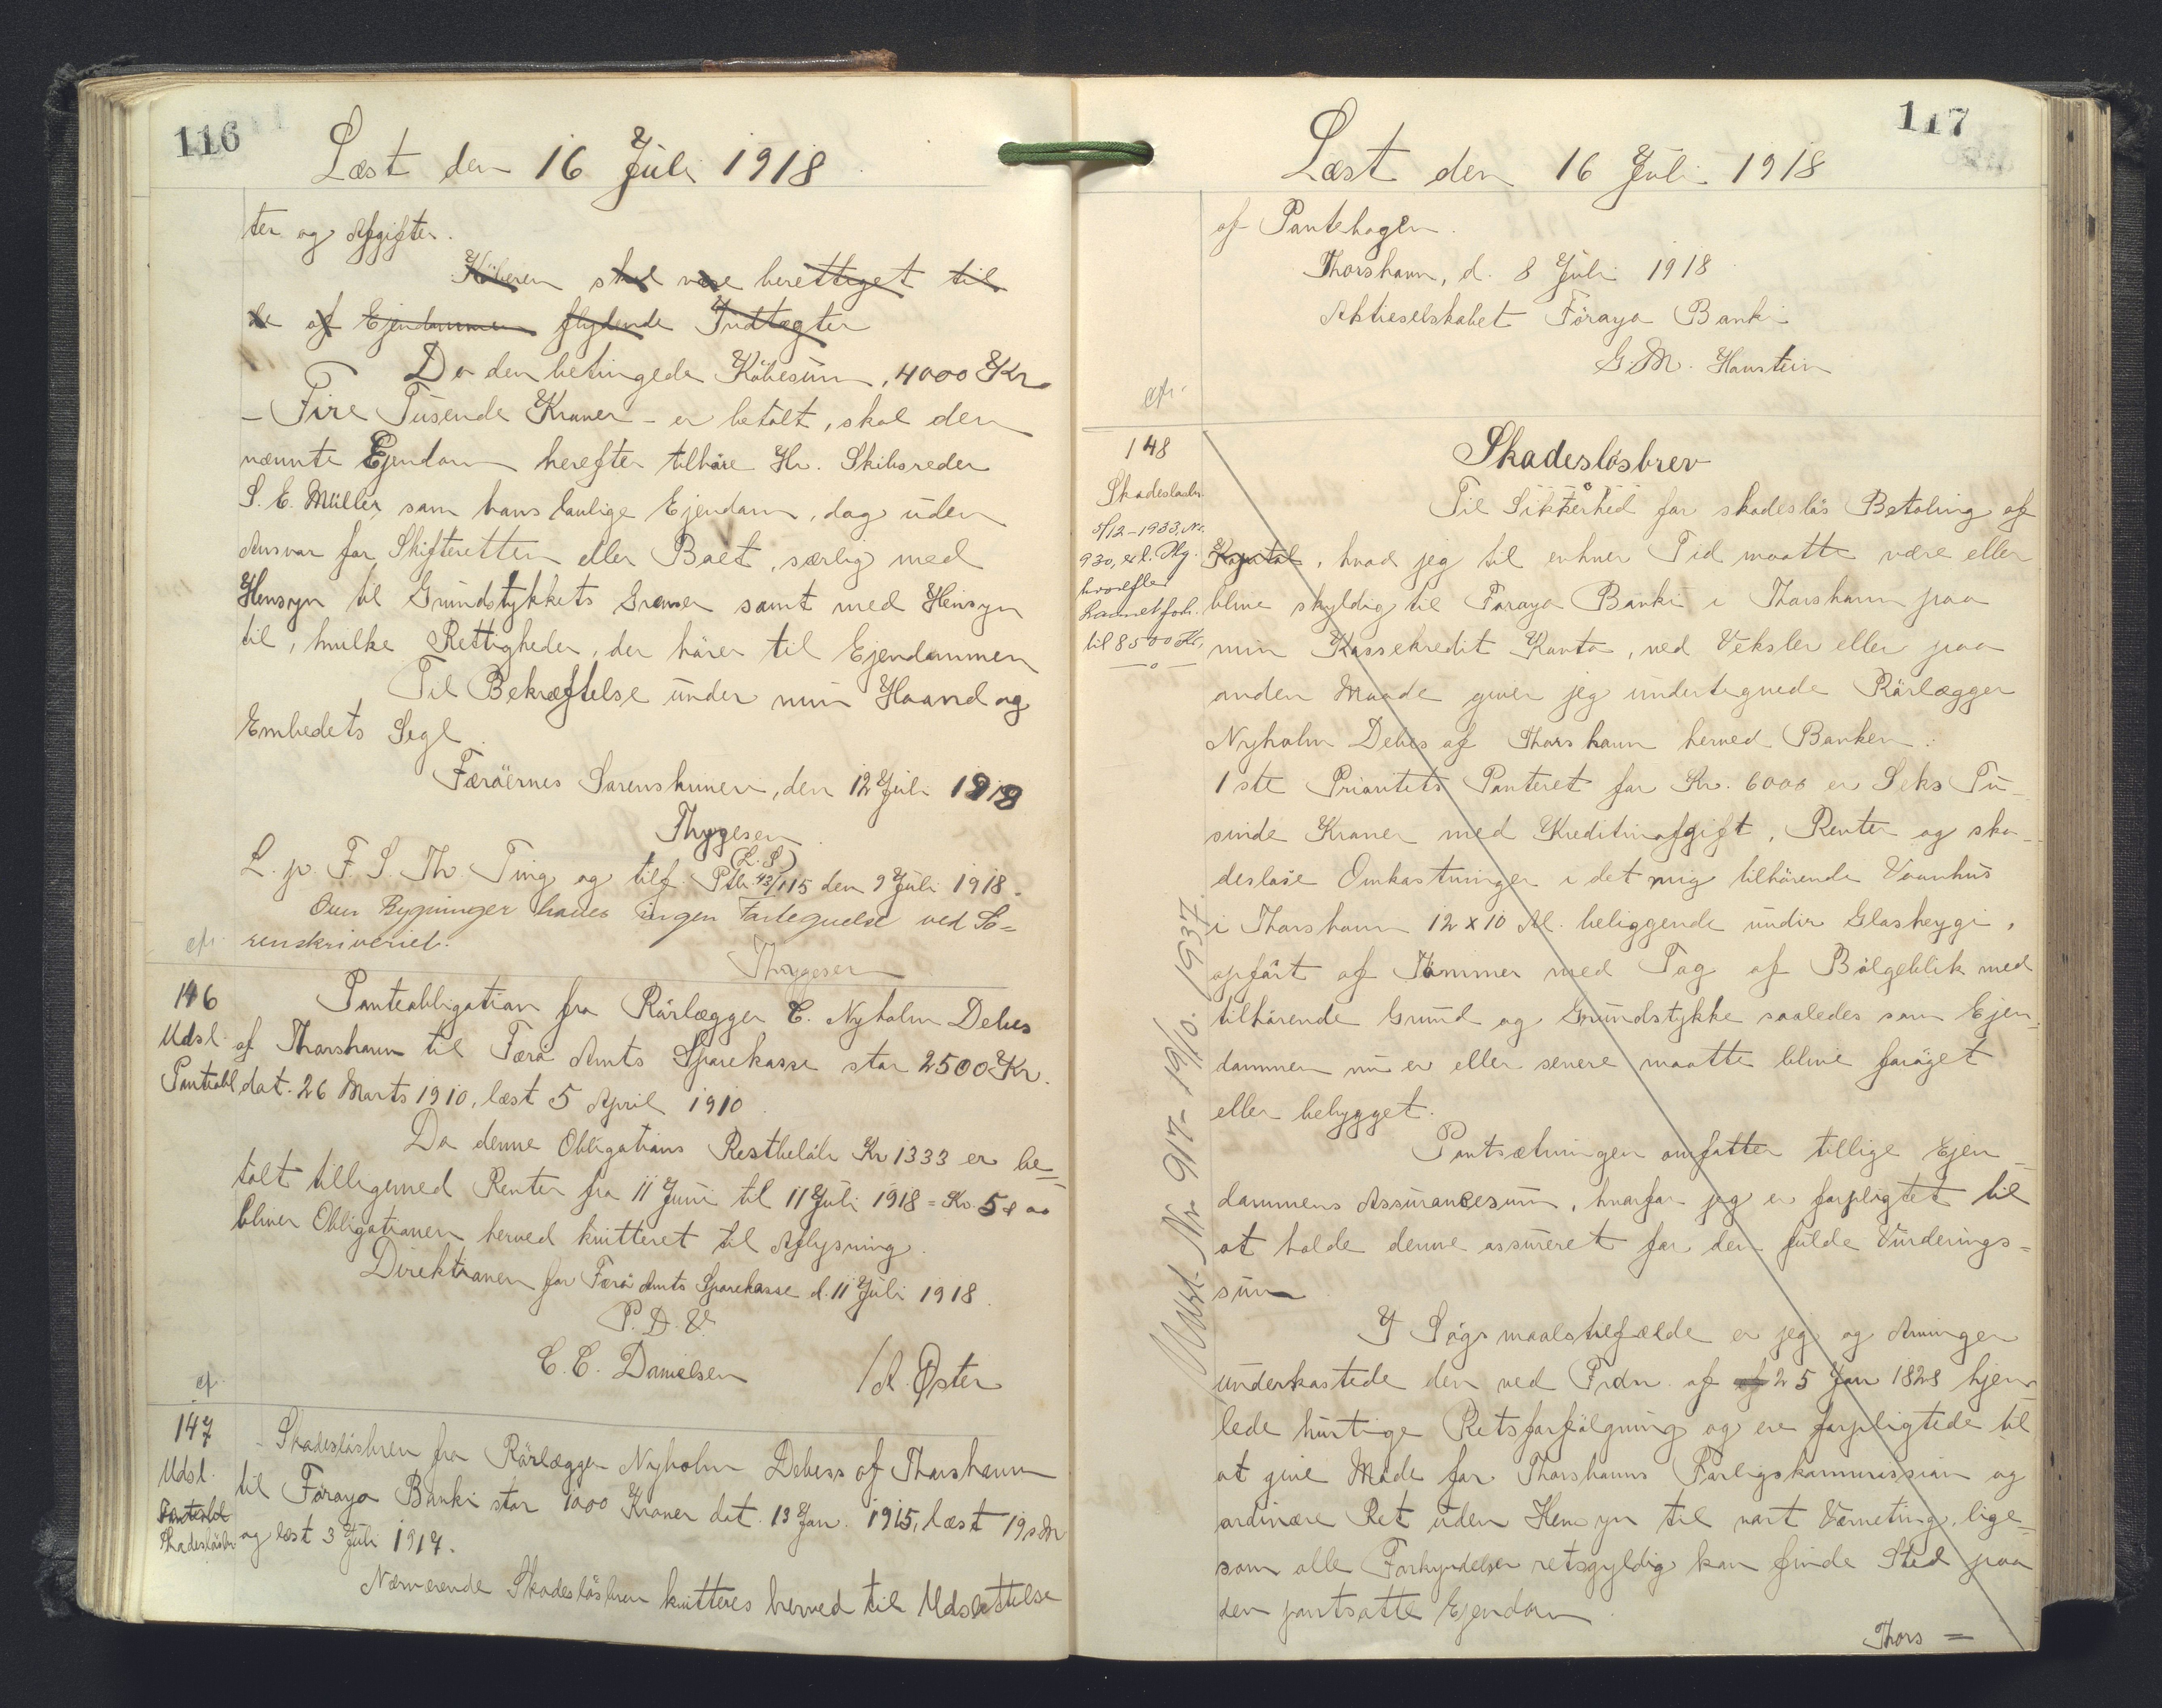 116
Læst den 16 Juli 1918
ter og Afgifter.
Köberen skal være berettiget til
de af Ejendommen flydende Indtægter
Da den betingede Köbesum, 4000 Kr
- Fire Tusende Kroner - er betalt, skal den
nævnte Ejendom herefter tilhöre Hr. Skibsreder
S. E. Müller, som hans lovlige Ejendom, dog uden
Ansvar for Skifteretten eller Boet, særlig med
Hensyn til Grundstykkets Grænser samt med Hensyn
til, hvilke Rettigheder, der hörer til Ejendommen
Til Bekræftelse under min Haand og
Embedets Segl.
Færöernes Sorenskriveri, den 12 Juli 1918
Thygesen
(L. S)
L. p. F. S. Th. Ting og tilf. Ptb. 43/115 den 9 Juli 1918.
Over Bygninger haves ingen Fortegnelse ved So=
renskriveriet.
Thygesen
cfr.
146
Udsl.
Panteobl
Panteobligation fra Rörlægger C. Nyholm Debes
af Thorshavn til Færö Amts Sparekasse stor 2500 Kr.
dat. 26 Marts 1910, læst 5 April 1910.
Da denne Obligations Restbelöb Kr 1333 er be=
talt tilligemed Renter fra 11 Juni til 11 Juli 1918 = Kr. 5
bliver Obligationen herved kvitteret til Aflysning.
Direktionen for Færö Amts Sparekasse d. 11 Juli 1918.
P. D. V.
C. C. Danielsen / A. Øster
cf.
147
Udsl.
Panteobl
Skadeslösbr
Skadeslösbrev fra Rörlægger Nyholm Debess af Thorshavn
til Föroya Banki stor 1000 Kroner dat. 13 Jan. 1915, læst 19 s. M
og læst 3 Juli 1917.
Nærværende Skadeslösbrev kvitteres herved til Udslettelse
117
Læst den 16 Juli 1918
af Pantebogen.
Thorshavn, d. 8 Juli 1918
Aktieselskabet Föroya Banki
G. M. Hanstein
cfr.
148
Skadeslösbr.
5/12-1933, Nr.
930, erl. Plg.
hvorefter
Laanet forh.
til 8500 Kr,
—o—
Udsl. Nr 917- 19/10. 1937.
Skadeslösbrev
Til Sikkerhed for skadeslös Betaling af
Kapital, hvad jeg til enhver Tid maatte være eller
blive skyldig til Föroya Banki i Thorshavn paa
min Kassekredit Konto, ved Veksler eller paa
anden Maade giver jeg undertegnede Rörlægger
Nyholm Debes af Thorshavn herved Banken:
1 ste Prioritets Panteret for Kr. 6000 er Seks Tu-
sinde Kroner med Kreditivafgift, Renter og ska-
deslöse Omkostninger i det mig tilhörende Vaanhus
i Thorshavn 12 x 10 Al. beliggende undir Glasheygi,
opfört af Tömmer med Tag af Bölgeblik med
tilhörende Grund og Grundstykke saaledes som Ejen-
dommen nu er eller senere maatte blive foröget
eller bebygget.
Pantsætningen omfatter tillige Ejen-
dommens Assurancesum, hvorfor jeg er forpligtet til
at holde denne assureret for den fulde Vurderings=
sum
I Sögsmaalstilfælde er jeg og Arvinger
underkastede den ved Frdn. af 25 Jan 1828 hjem
lede hurtige Retsforfölgning og ere forpligtede til
at give Möde for Thorshavns Forligskommission og
ordinære Ret uden Hensyn til vort Værneting, lige=
som alle Forkyndelser retsgyldig kan finde Sted paa
den pantsatte Ejendom.
Thors =